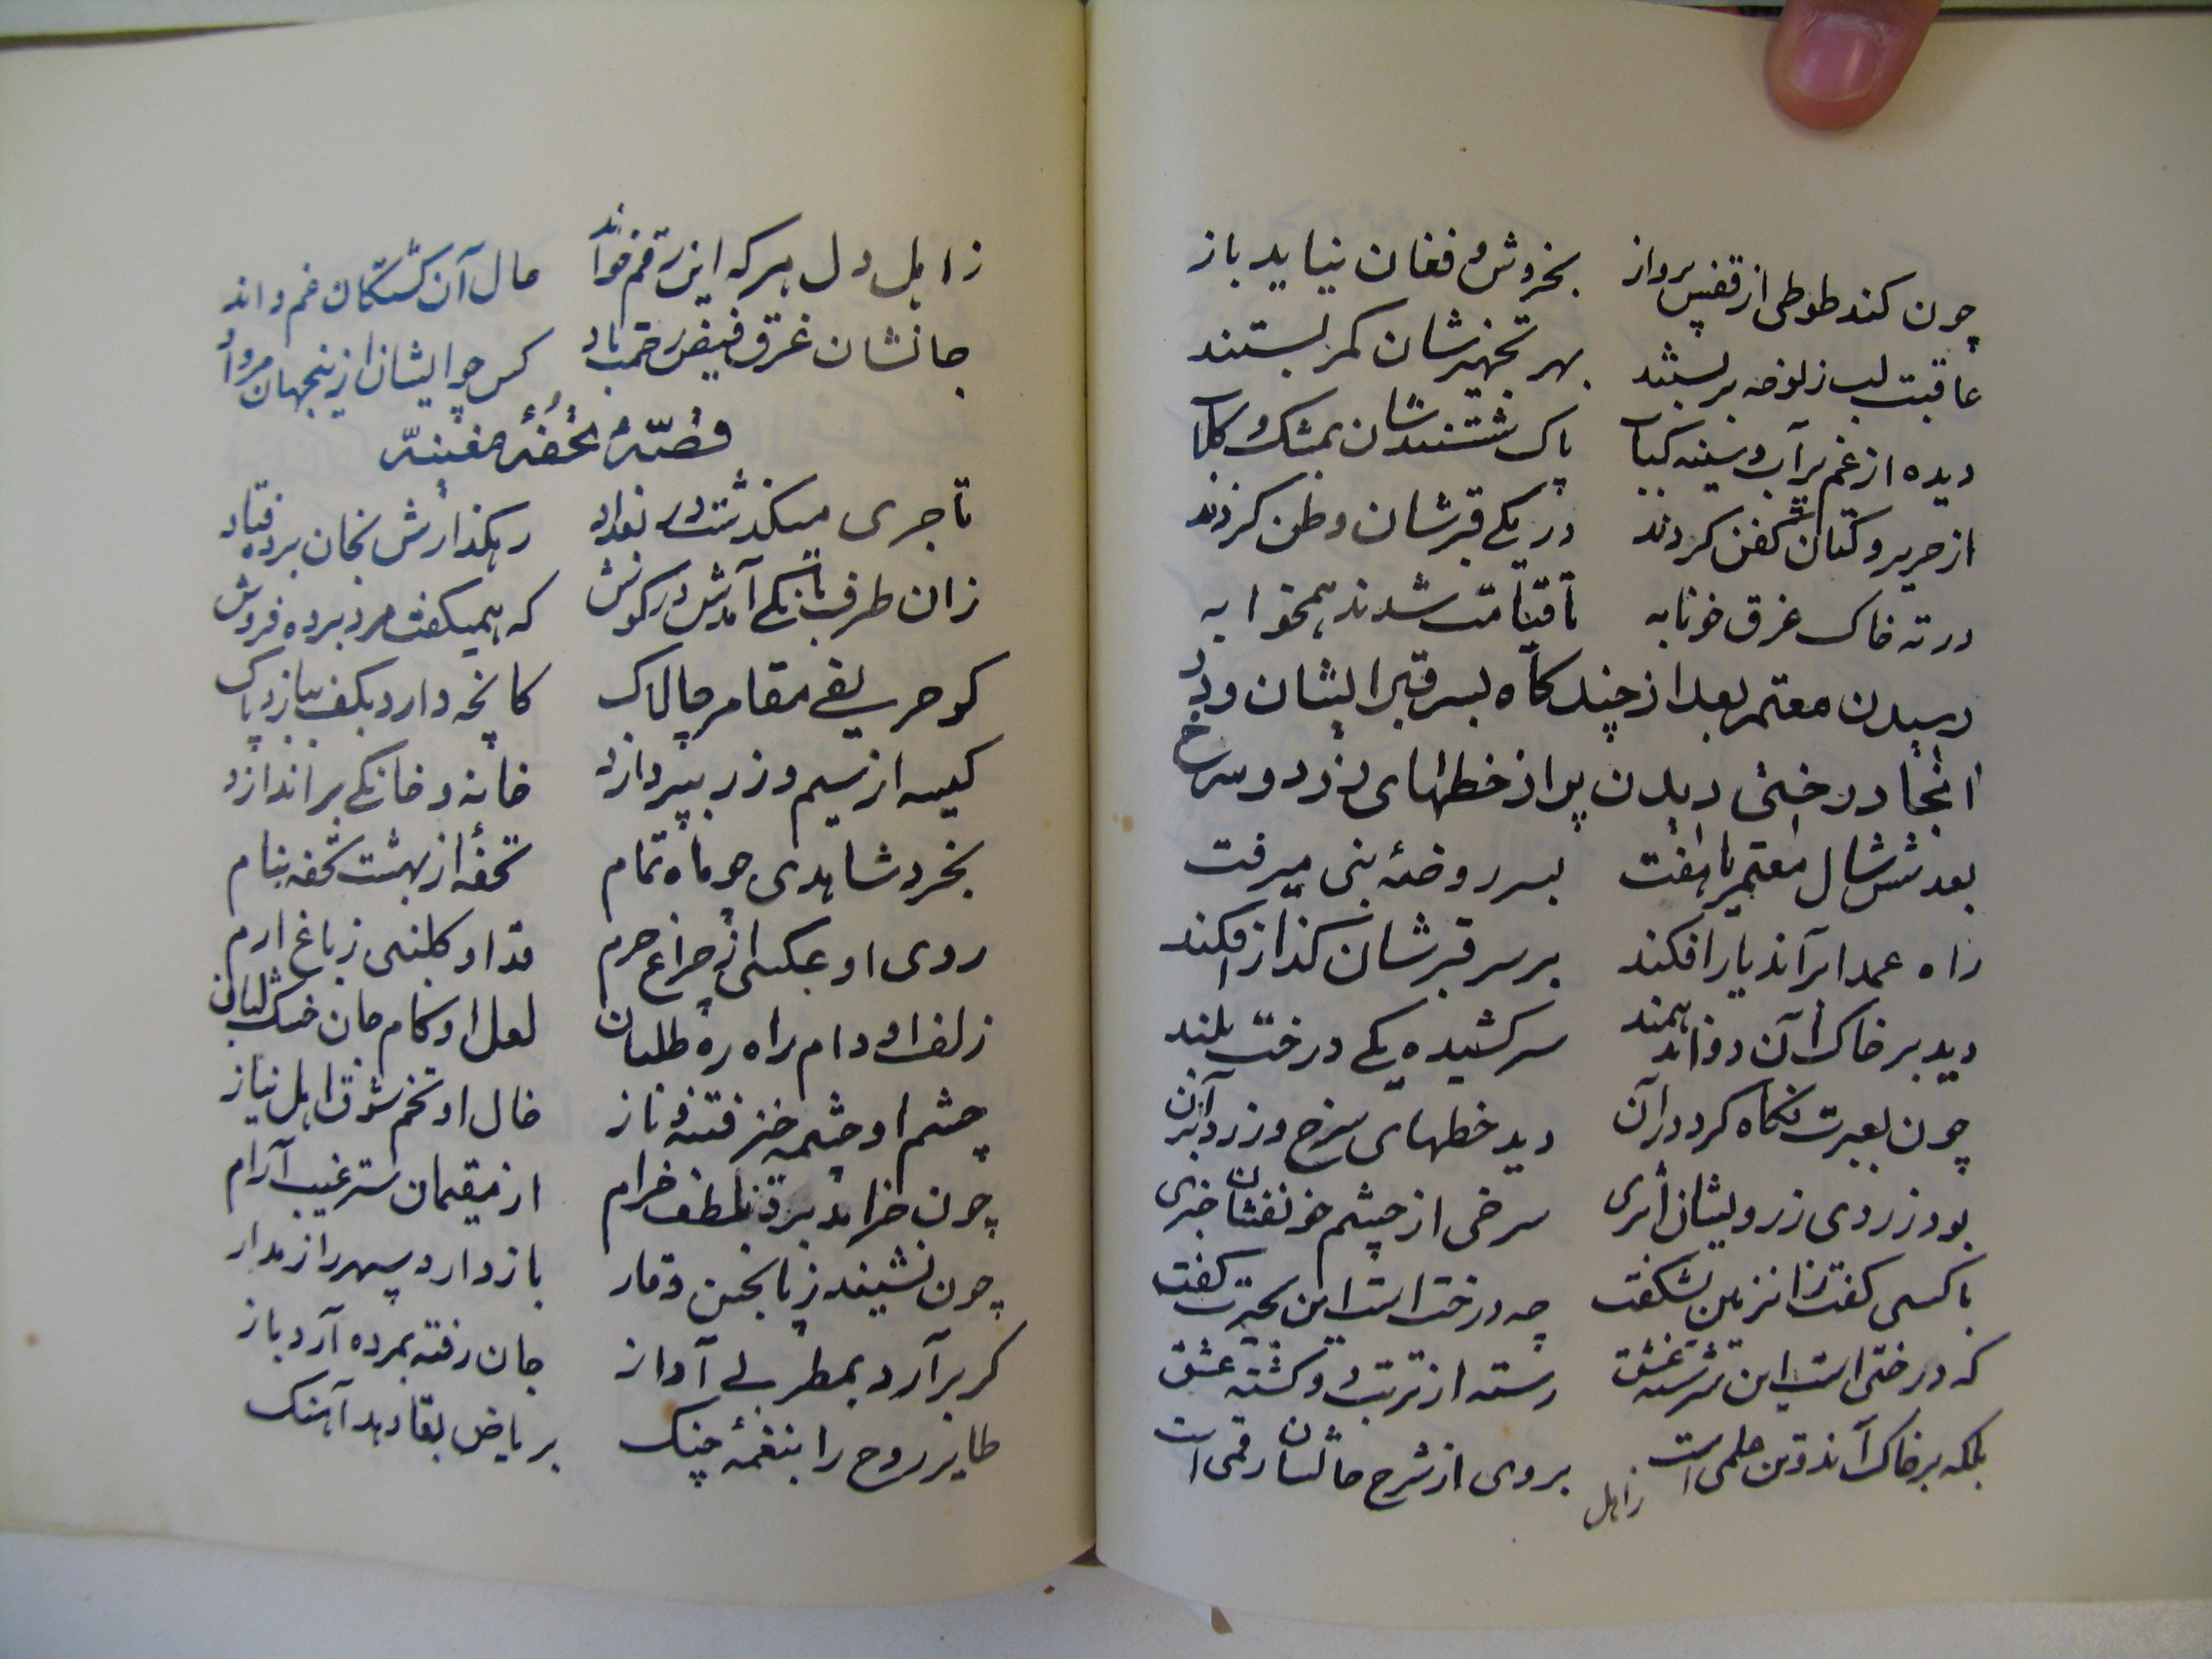 چون کند طوطی از قفس پرواز بخروش و فغان نیاید باز
عاقبت لب ز نوحه بربستند بهر تجهیزشان کمر بستند
دیده از غم پرآب و سینه کباب پاک شستندشان بمشک و گلاب
از حریر و کتان کفن کردند در یکی قبرشان وطن کردند
در ته خاک غرق خونابه تا قیامت شدند همخوابه
رسیدن معتمر بعد از چند گاه بسر قبر ایشان و در
آنجا درختی دیدن پر از خطهای زرد و سرخ
بعد شش سال معتمر یا هفت بسر روضهٔ نبی میرفت
راه عمدا برآن دیار افکند بر سر قبرشان گذار افکند
دید بر خاک آن دو اندهمند سر کشیده یکی درخت بلند
چون بعبرت نگاه کرد در آن دید خطهای سرخ و زرد بر آن
بود زردی ز رویشان اثری سرخی از چشم خونفشان خبری
با کسی گفت زان زمین بشگفت چه درختست این بحیرت گفت
که درختی است این سرشته عشق رسته از تربت دو کشته عشق
بلکه بر خاک آن دو تن علمی است بروی از شرح حالشان رقمی است
ز اهل
ز اهل دل هر که این رقم خواند حال آن کشتگان غم داند
جانشان غرق فیض رحمت باد کس چو ایشان ازینجهان مرواد
قصّهٔ تحفهٔ مغنیه
تاجری میگذشت در بغداد رهگذارش بخان برده فتاد
زان طرف بانگی آمدش در گوش که همیگفت مرد برده فروش
کو حریفی مقامر چالاک کانچه دارد بکف ببازد پاک
کیسه از سیم و زر بپردازد خانه و خانگی براندازد
بخرد شاهدی چو ماه تمام تحفهٔ از بهشت تحفه بنام
روی او عکسی از چراغ حرم قد او گلبنی ز باغ ارم
زلف او دام راه ره طلبان لعل او کام جان خشک لبان
چشم او چشمه خیز فتنه و ناز خال او تخم شوق اهل نیاز
چون خرامد برد بلطف خرام از مقیمان ستر غیب آرام
چون نشیند ز پا بحسن وقار باز دارد سپهر را ز مدار
گر برآرد بمطربی آواز جان رفته بمرده آرد باز
طایر روح را بنغمهٔ چنگ بر ریاض بقا دهد آهنگ